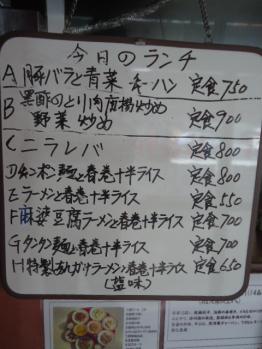 今日のランチ
A 豚バラと青菜チャーハン 定食750
B 黒酢のとり肉唐揚炒め
野菜炒め 定食900
C ニラレバ 定食800
Dチャンポン麺と春巻半ライス 定食800
Eラーメンと春巻半ライス 定食550
F麻婆豆腐ラーメンと春巻半ライス 定食700
Gタンタン麺と春巻半ライス 定食700
H特製あんかけラーメンと春巻半ライス 定食650
(塩味)